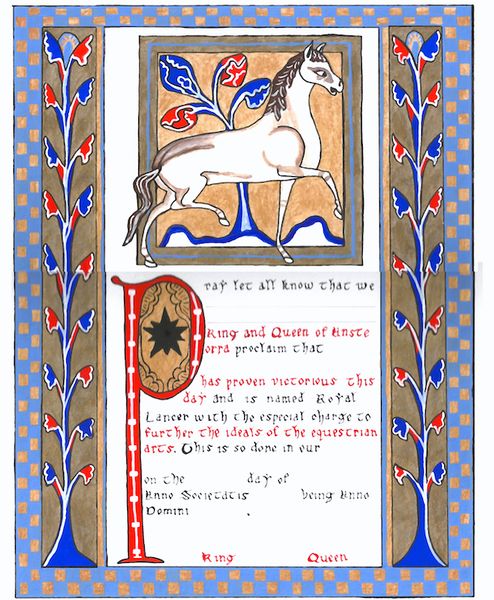 Pray let all know that we
King and Queen of Anste
orra proclaim that
has proven victorious this
day and is named Royal
Lancer with the especial charge to
further the ideals of the equestrian
arts. This is so done in our
on the day of
Anno Societatis being Anno
Domini .
King Queen